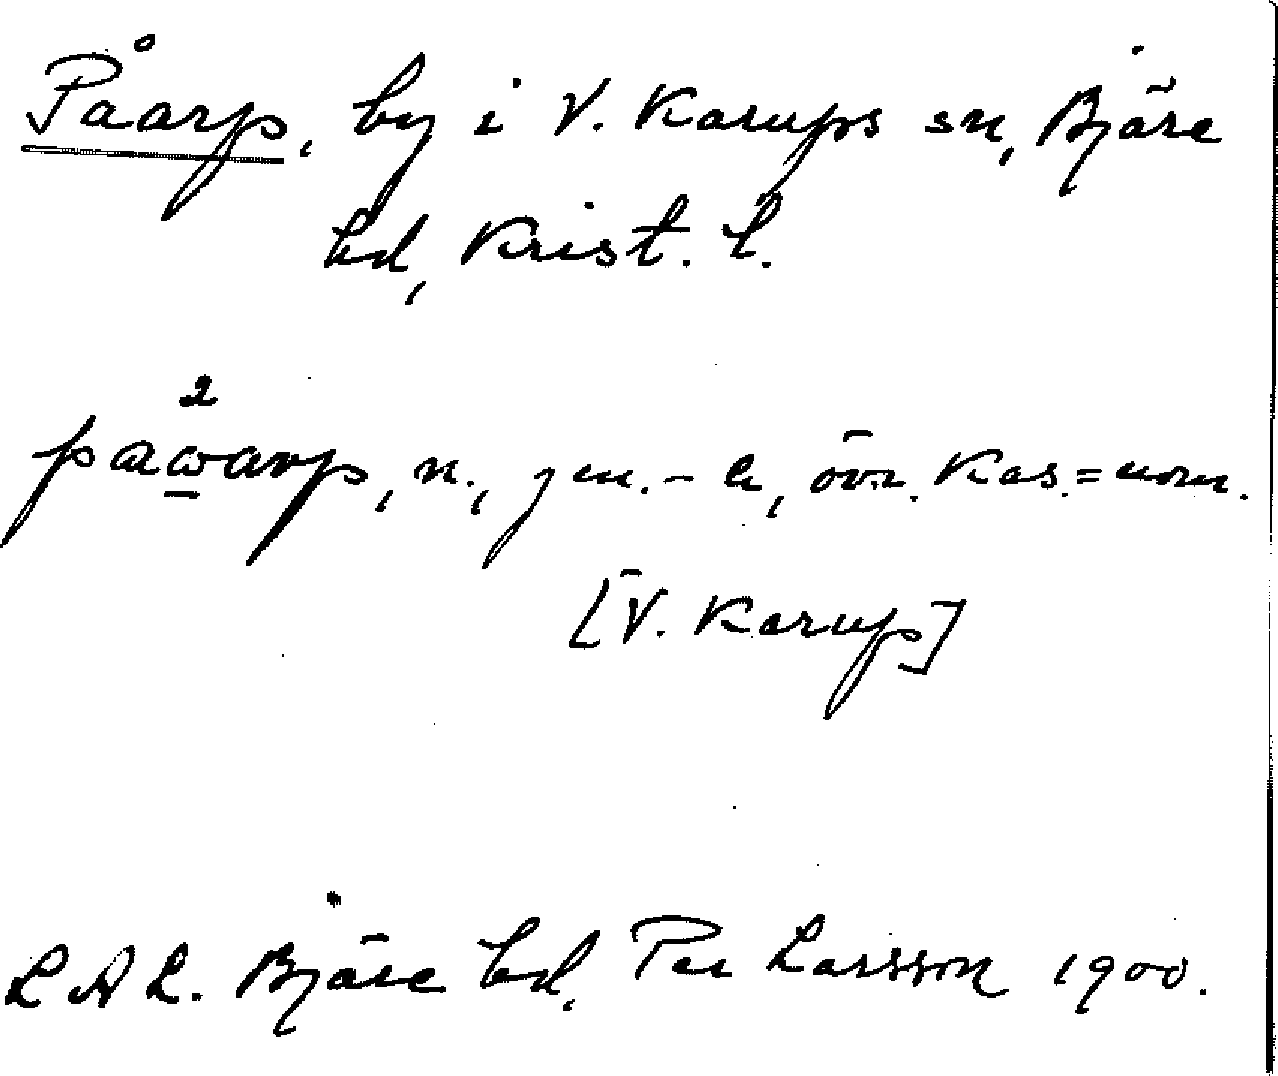 Påarp, by i V. Karups sn, Bjäre
hd, Krist. l.
2
pawarp, n., gen. - e, övr. kas. = nom.
[V. Karup]
LAL. Bjäre hd, Per Larsson 1900.